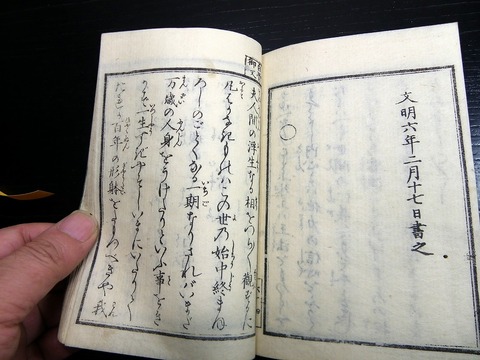 文明六年二月十七日書之
夫人間の浮生なる相をつら〱観ずるに
凡はかなきものはこの世乃始中終まぼ
ろしのごとくなる一期なりさればいまだ
万歳の人身をうけたりといふ事をき
かず一生すぎやすしいまにいたりて
たれか百年の形躰をたもつべきや我